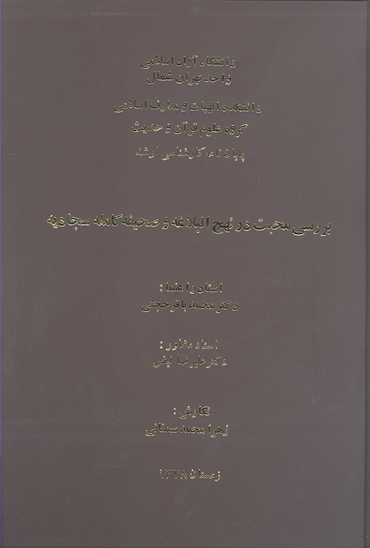 دانشگاه آزاد اسلامی
واحد تهران شمال
دانشکده الهیات و معارف اسلامی
گروه علوم قرآن و حدیث
پایان نامه کارشناسی ارشد
بررسی محبت در نهج البلاغه و صحیفه کامله سجادیه
استاد راهنما:
دکتر محمد باقر حجتی
استاد مشاور:
دکتر علیرضا فیض
نگارش:
زهرا محمد سمنانی
زمستان ۱۳۷۸